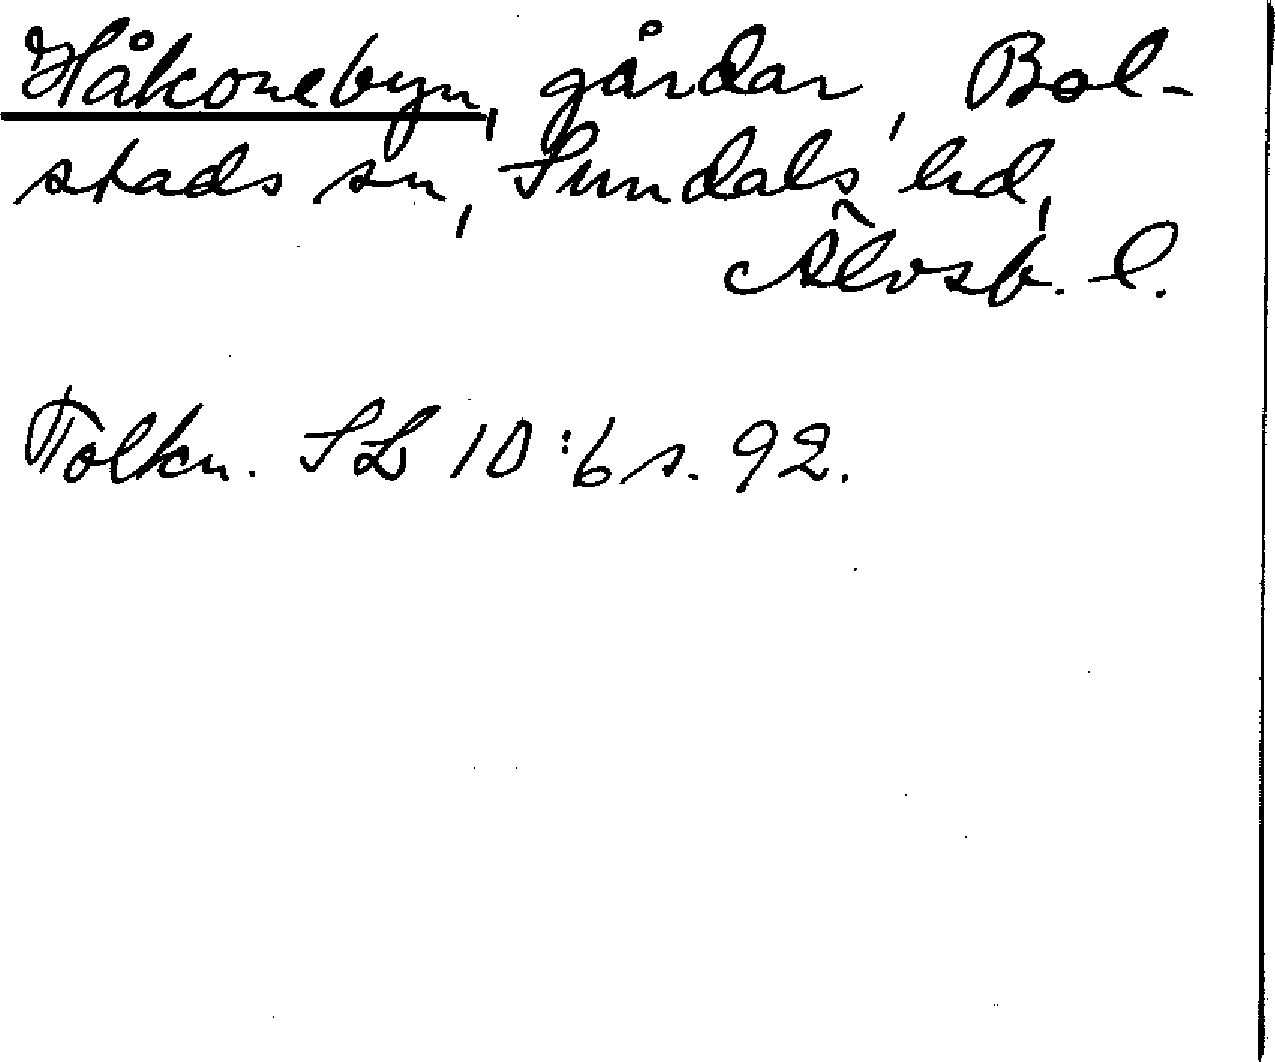 Håkonebyn, gårdar, Bol-
stads sn, Sundals hd,
Älvsb. l.
Tolkn. SL 10:6 s. 92.